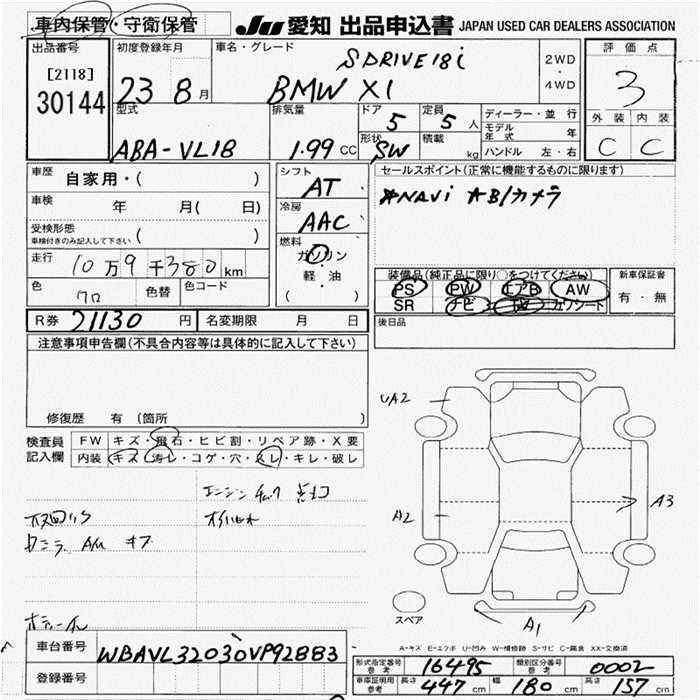 車内保管・守衛保管
JU 愛知 出品申込書 JAPAN USED CAR DEALERS ASSOCIATION
出品番号
[2118]
30144
初度登録年月
23 8月
車名・グレード
SDRIVE18i
BMW X1
2WD
・
4WD
評価点
3
外装 内装
C C
型式
ABA-VL18
排気量
1.99 CC
ドア
5
定員
5人
形状
SW
積載
kg
ディーラー・並行
モデル年式 年
ハンドル 左・右
車歴
自家用・( )
車検
年 月( 日)
受検形態
車検付きのみ記入して下さい ( )
走行
10万9千380km
色
クロ
色替
色コード
シフト
AT
冷房
AAC
燃料
ガソリン
軽・油
( ・ )
セールスポイント(正常に機能するものに限ります)
*NAVi *B/カメラ
装備品(純正品に限り○をつけてください)
PS PW エアB AW
SR ナビ TV カワシート
新車保証書
有・無
後日品
R券 21130円
名変期限 月 日
注意事項申告欄(不具合内容等は具体的に記入して下さい)
修復歴 有(箇所 )
検査員
記入欄
FW キズ・飛石・ヒビ割・リペア跡・X要
内装 キズ・汚レ・コゲ・穴・スレ・キレ・破レ
エンジンチェック 点灯
UA2
A2
A3
A1
スペア
A-キズ E-エクボ U-凹み W-補修跡 S-サビ C-腐食 XX-交換済
車台番号
WBAVL32030VP92883
登録番号
形式指定番号
参考
16495
類別区分番号
参考
0002
車庫証明用
参考
長さ 447cm 幅 180cm 高さ 157cm